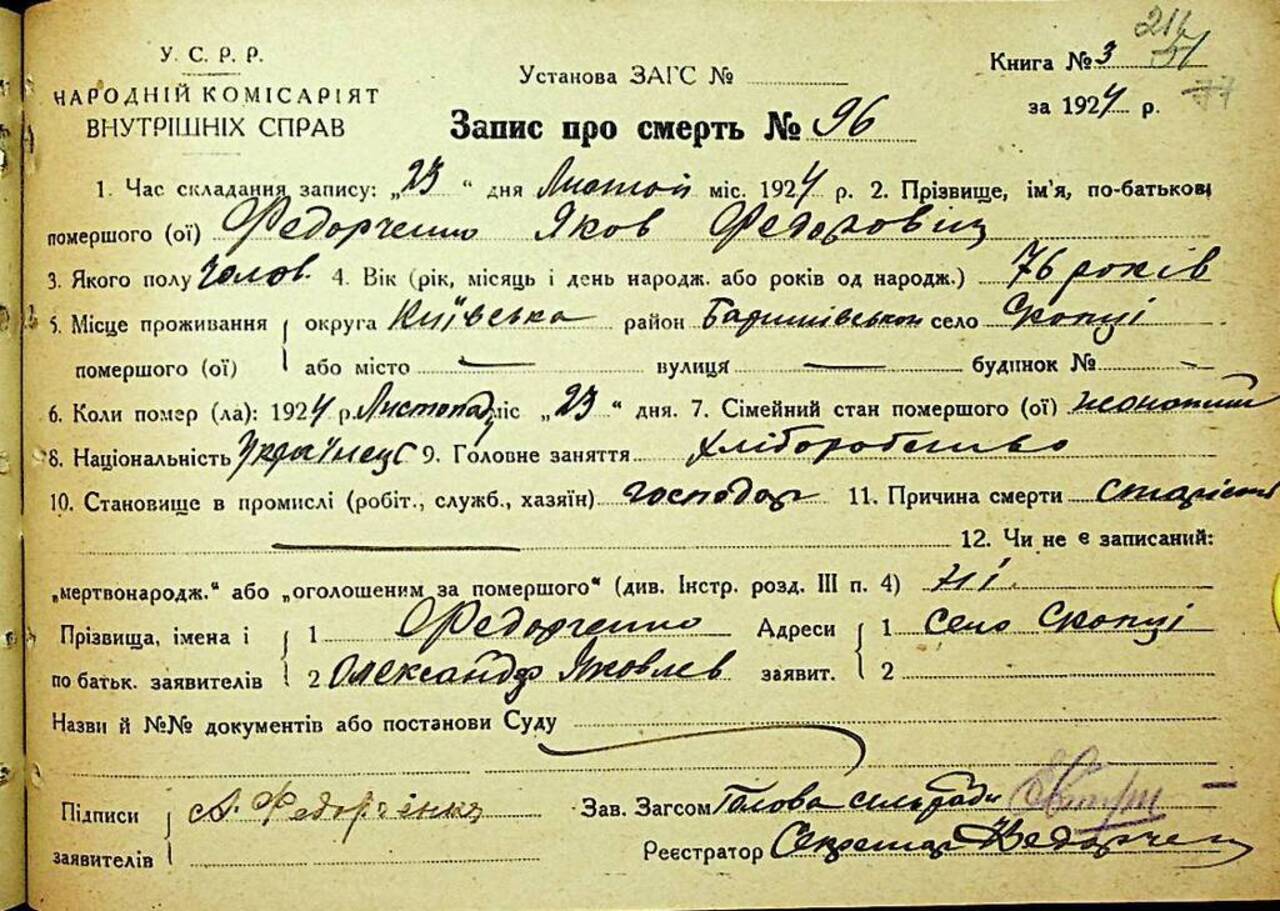 216
У. С. Р. Р.
Установа ЗАГС №
Книга № 3 51
НАРОДНІЙ КОМІСАРІЯТ
за 1924 р. 77
ВНУТРІШНІХ СПРАВ
Запис про смерть № 96
1. Час складання запису: „23“ дня Листоп міс. 1924 р. 2. Прізвище, ім'я, по-батькові
помершого (ої) Федорченко Яков Федорович
3. Якого полу чолов. 4. Вік (рік, місяць і день народж. або років од народж.) 76 років
5. Місце проживання округа Київська район Баришівськой село Скопці
помершого (ої) або місто — вулиця — будинок № —
6. Коли помер (ла): 1924 р. Листопад міс „23“ дня. 7. Сімейний стан помершого (ої) жонатий
8. Національність Українець 9. Головне заняття хліборобство
10. Становище в промислі (робіт., служб., хазяїн) господар 11. Причина смерти старість
12. Чи не є записаний:
„мертвонародж.“ або „оголошеним за помершого“ (див. Інстр. розд. III п. 4) ні.
Прізвища, імена і 1 Федорченко Адреси 1 село Скопці
по батьк. заявителів 2 Олександр Яковлев заявит. 2
Назви й №№ документів або постанови Суду
Підписи А. Федорчінко Зав. Загсом Голова сильради
заявителів Реєстратор Секретар Федорчен